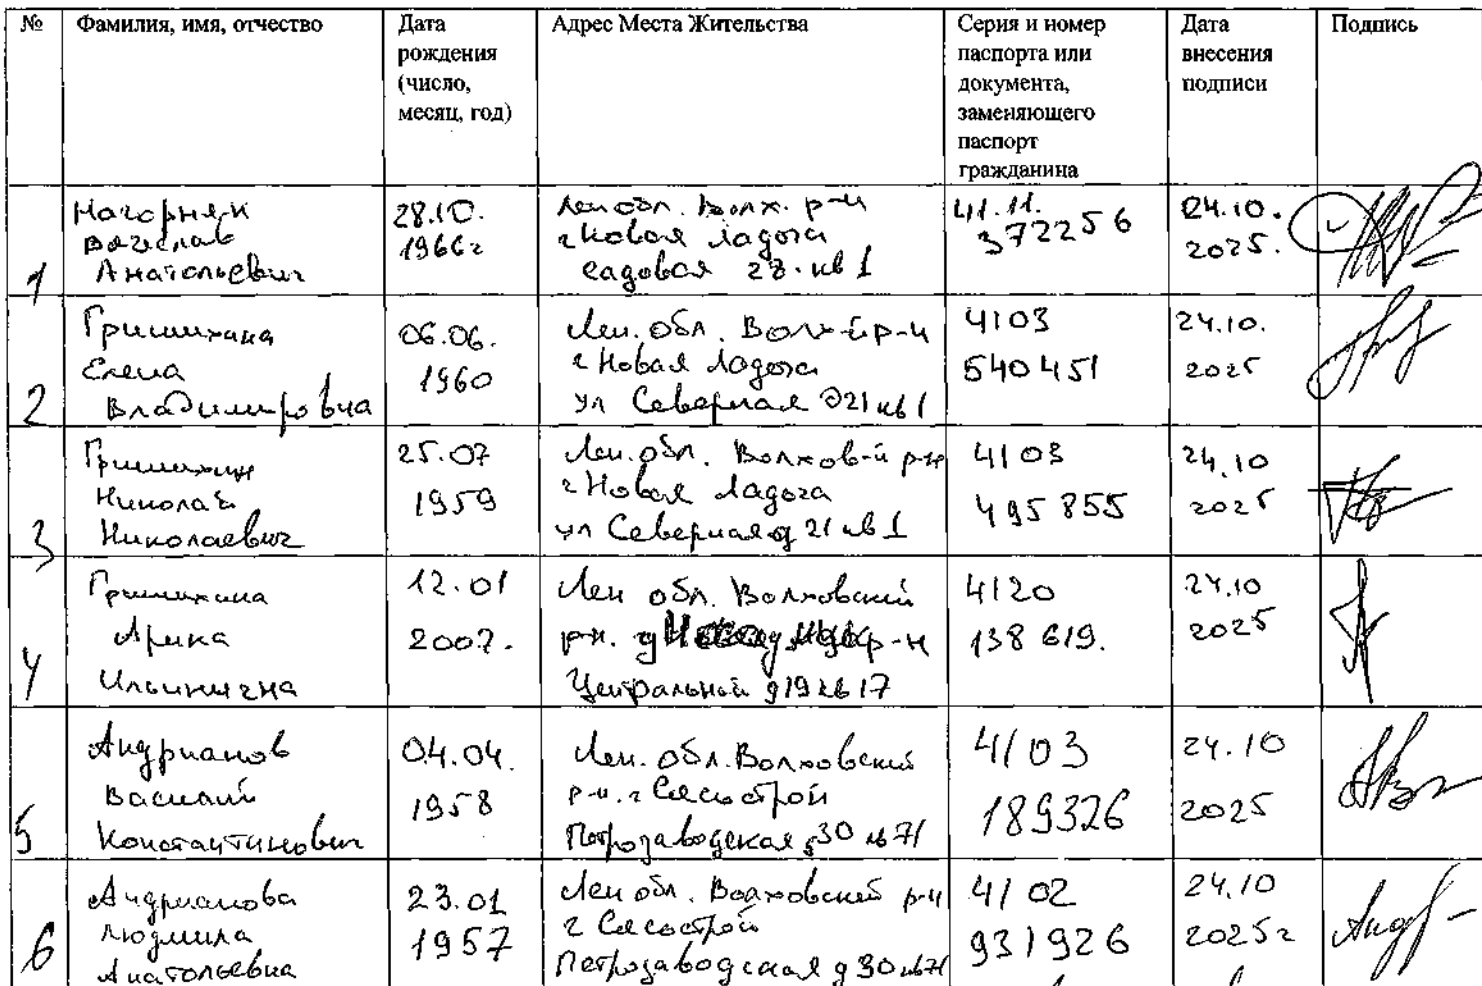 № Фамилия, имя, отчество Дата рождения (число, месяц, год) Адрес Места Жительства Серия и номер паспорта или документа, заменяющего паспорт гражданина Дата внесения подписи Подпись
1
Нагорняк
Вячеслав
Анатольевич
28.10.
1966г
Лен обл. Волх. р-н
г Новая Ладога
садовая кв 1
41.11.
372256
24.10.
2025.
2
Гришихина
Елена
Владимировна
06.06.
1960
Лен. обл. Волх-й р-н
г Новая Ладога
ул Северная д21 кв 1
4103
540451
24.10.
2025
3
Гришихин
Николай
Николаевич
25.07
1959
Лен. обл. Волхов-й р-н
г Новая Ладога
ул Северная д 21 кв 1
4103
495855
24.10
2025
4
Гришихина
Арина
Ильинична
12.01
2007.
Лен обл. Волховский
р-н. р-н
Центральный д19 кв 17
4120
138 619.
24.10
2025
5
Андрианов
Василий
Константинович
04.04.
1958
Лен. обл. Волховский
р-н. г Сясьстрой
Петрозаводская д30 кв 71
4103
189326
24.10
2025
6
Андрианова
Людмила
Анатольевна
23.01
1957
Лен обл. Волховский р-н
г Сясьстрой
Петрозаводская д 30 кв71
4102
931926
24.10
2025г